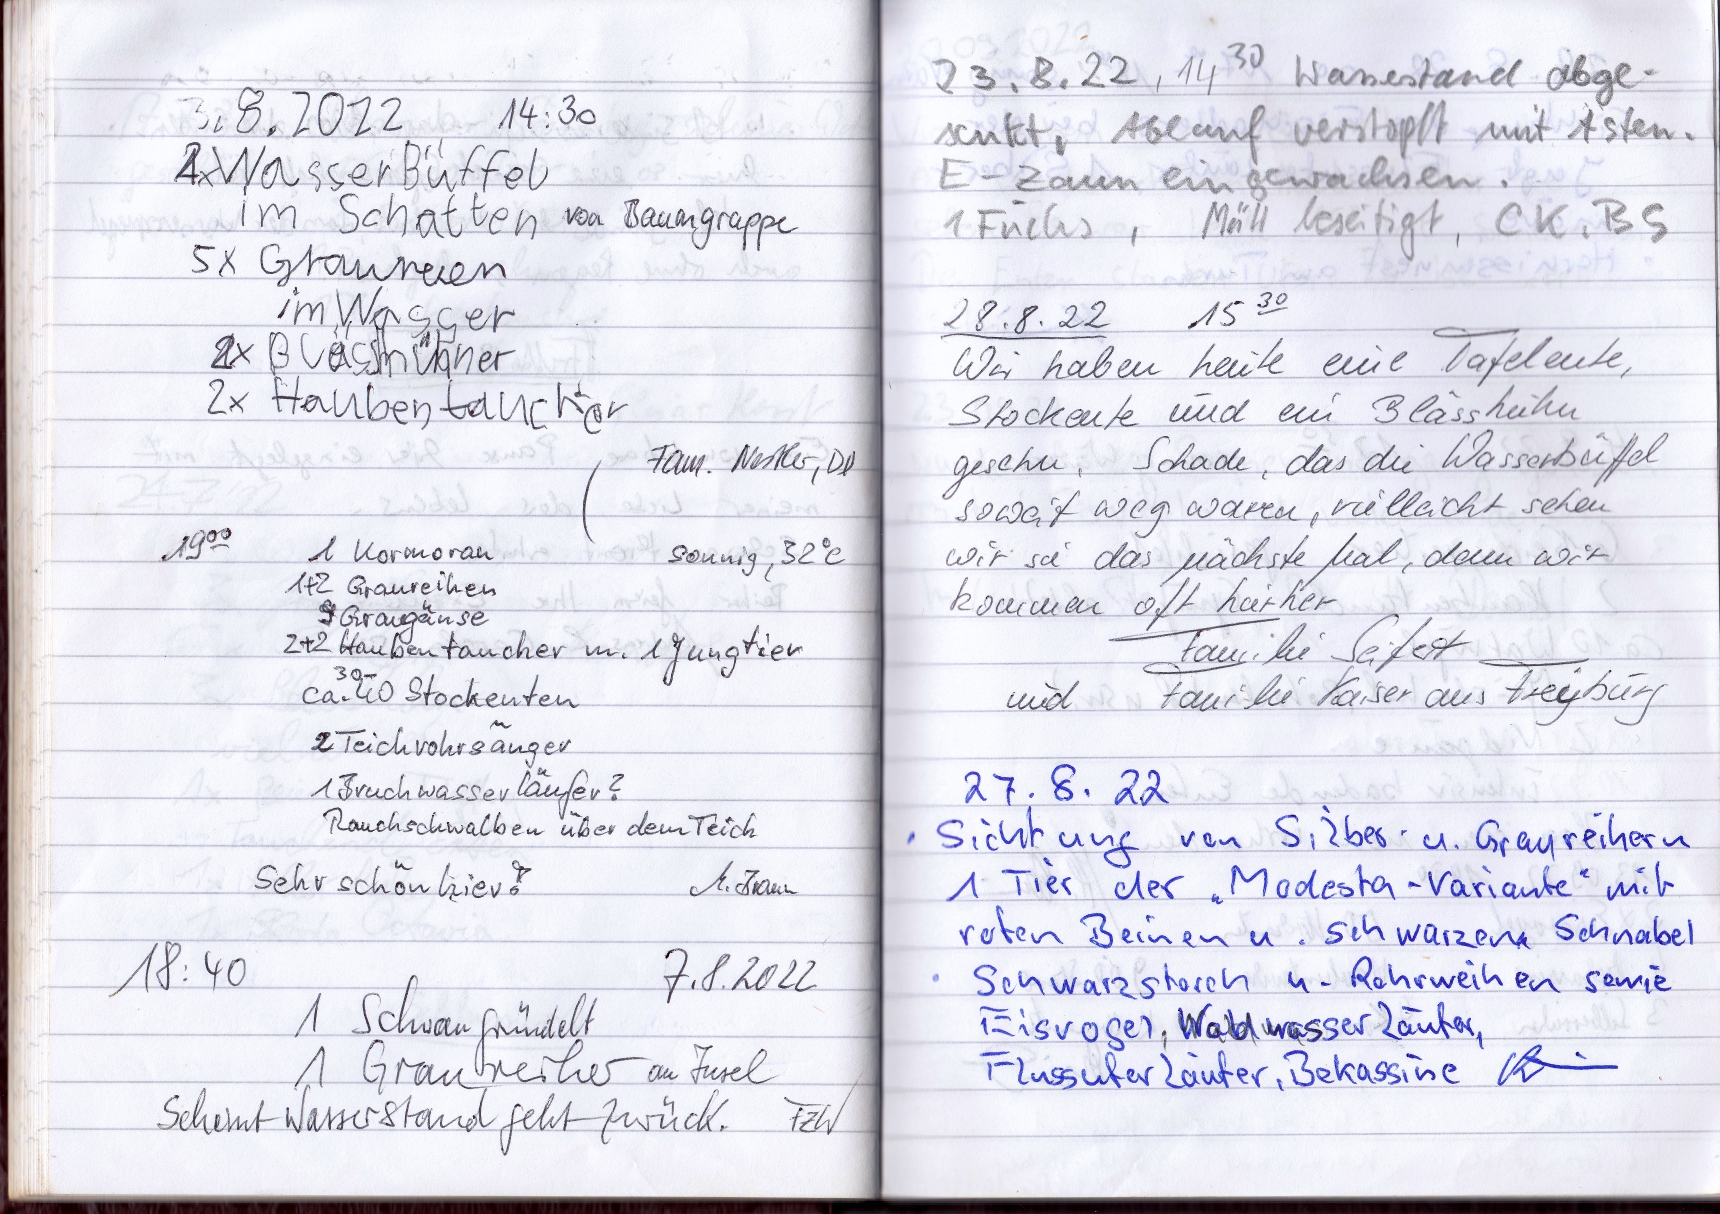 3.8.2022 14:30
4x Wasser Büffel
im Schatten von Baumgruppe
5x Graureien
im Wasser
2x Blässhühner
2x Haubentaucher
Fam. Nestler, DD
19⁰⁰ 1 Kormoran sonnig, 32°C
1+2 Graureihen
9 Graugänse
2+2 Haubentaucher m. 1 Jungtier
30-
ca. 40 Stockenten
2 Teichrohrsänger
1 Bruchwasserläufer?
Rauchschwalben über dem Teich
Sehr schön hier!
18:40 7.8.2022
1 Schwan gründelt
1 Graureiher an Insel
Scheint Wasserstand geht zurück. FzW
23.8.22, 14³⁰ Wasserstand abge-
senkt, Ablauf verstopft mit Ästen.
E-Zaun eingewachsen.
1 Fuchs, Müll beseitigt, CK, BS
28.8.22 15³⁰
Wir haben heute eine Tafelente,
Stockente und ein Blässhuhn
gesehn. Schade, das die Wasserbüffel
soweit weg waren, vielleicht sehen
wir sie das nächste Mal, denn wir
kommen oft hierher
Familie Seifert
und Familie Kaiser aus Freyburg
27.8.22
• Sichtung von Silber- u. Graureihern
1 Tier der „Modesta-Variante" mit
roten Beinen u. schwarzem Schnabel
• Schwarzstorch u. Rohrweihen sowie
Eisvogel, Waldwasserläufer,
Flussuferläufer, Bekassine